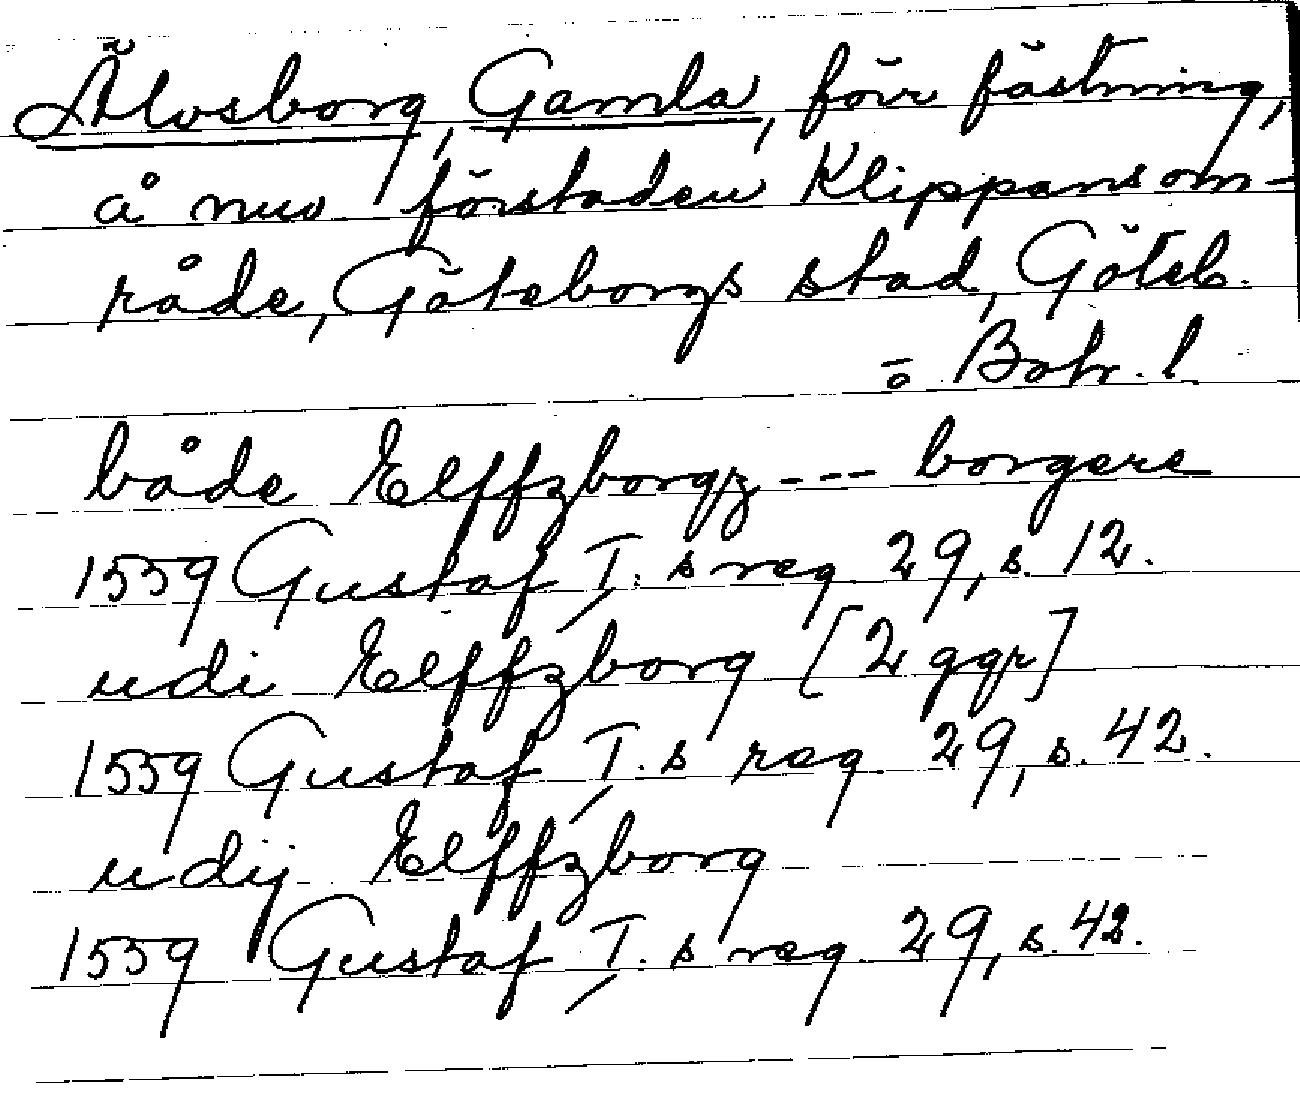 Älvsborg, Gamla, förr fästning,
å nuv förstaden Klippans om-
råde, Göteborgs stad, Göteb.
o Boh. l
både Elffzborgz --- borgere
1559 Gustaf I:s reg 29, s. 12.
udi Elffzborg [2 ggr]
1559 Gustaf I.s reg 29, s. 42.
udij Elffzborg
1559 Gustaf I.s reg 29, s. 42.